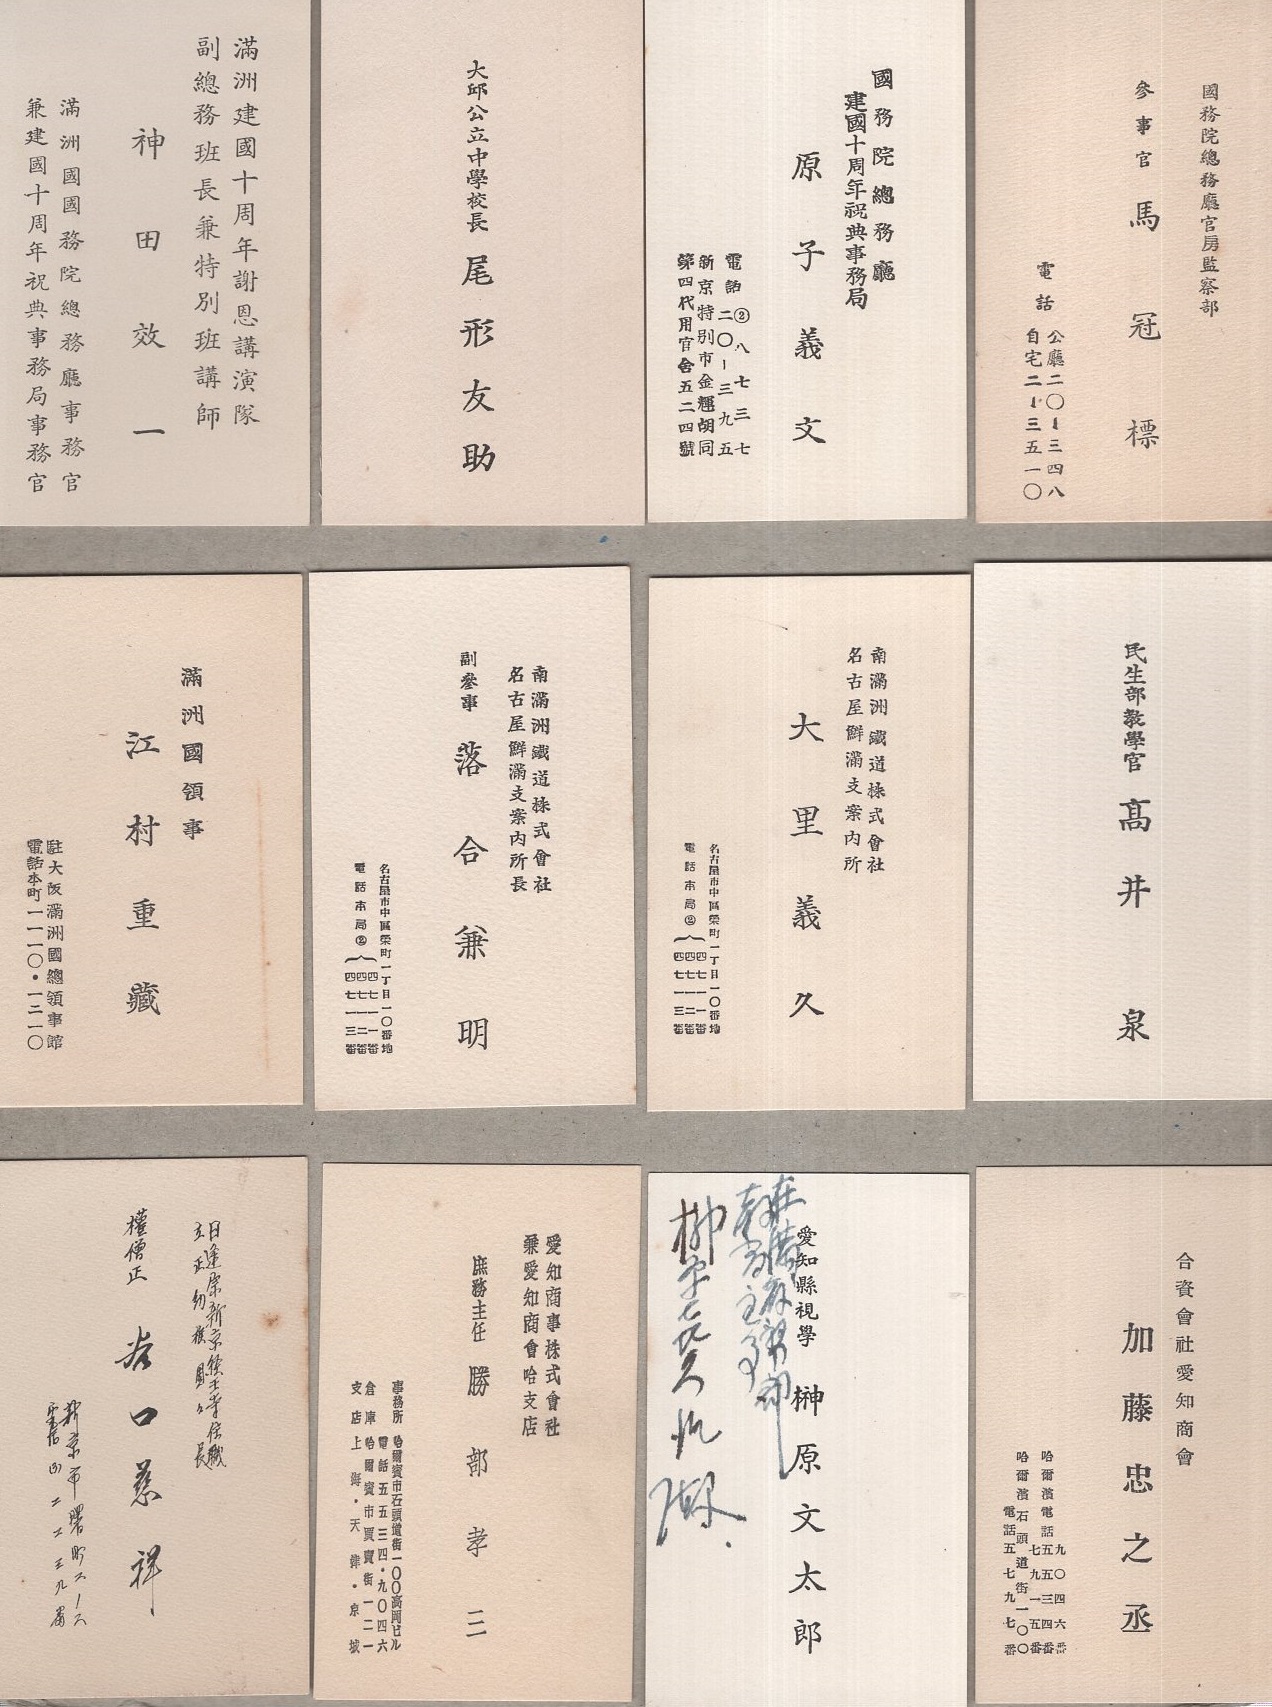 國務院總務廳官房監察部
參事官 馬冠標
電話
公廳二〇―三四八
自宅二―三五一〇
國務院總務廳
建國十周年祝典事務局
原子義文
電話 ②八七三七
二〇―三九五
新京特別市金輝胡同
第四代用官舍五二四號
大邱公立中學校長 尾形友助
滿洲建國十周年謝恩講演隊
副總務班長兼特別班講師
神田效一
滿洲國國務院總務廳事務官
兼建國十周年祝典事務局事務官
民生部教學官 髙井泉
南滿洲鐵道株式會社
名古屋鮮滿支案内所
大里義久
名古屋市中區榮町一丁目一〇番地
電話本局②
四七一一番
四七一二番
四七一三番
南滿洲鐵道株式會社
名古屋鮮滿支案内所長
副參事 落合兼明
名古屋市中區榮町一丁目一〇番地
電話本局②
四七一一番
四七一二番
四七一三番
滿洲國領事
江村重藏
駐大阪滿洲國總領事館
電話本町一一一〇・一二一〇
合資會社愛知商會
加藤忠之丞
哈爾濱電話
九〇四六番
五五三四番
七九一五番
哈爾濱石頭道街一〇〇
電話五七九七番
愛知縣視學 榊原文太郎
愛知商事株式會社
兼愛知商會哈支店
庶務主任 勝部孝三
事務所 哈爾賓市石頭道街一〇〇高岡ビル
電話五五三四・九〇四六
倉庫 哈爾賓市買賣街一二一
支店 上海・天津・京城
權僧正 谷口慈祥